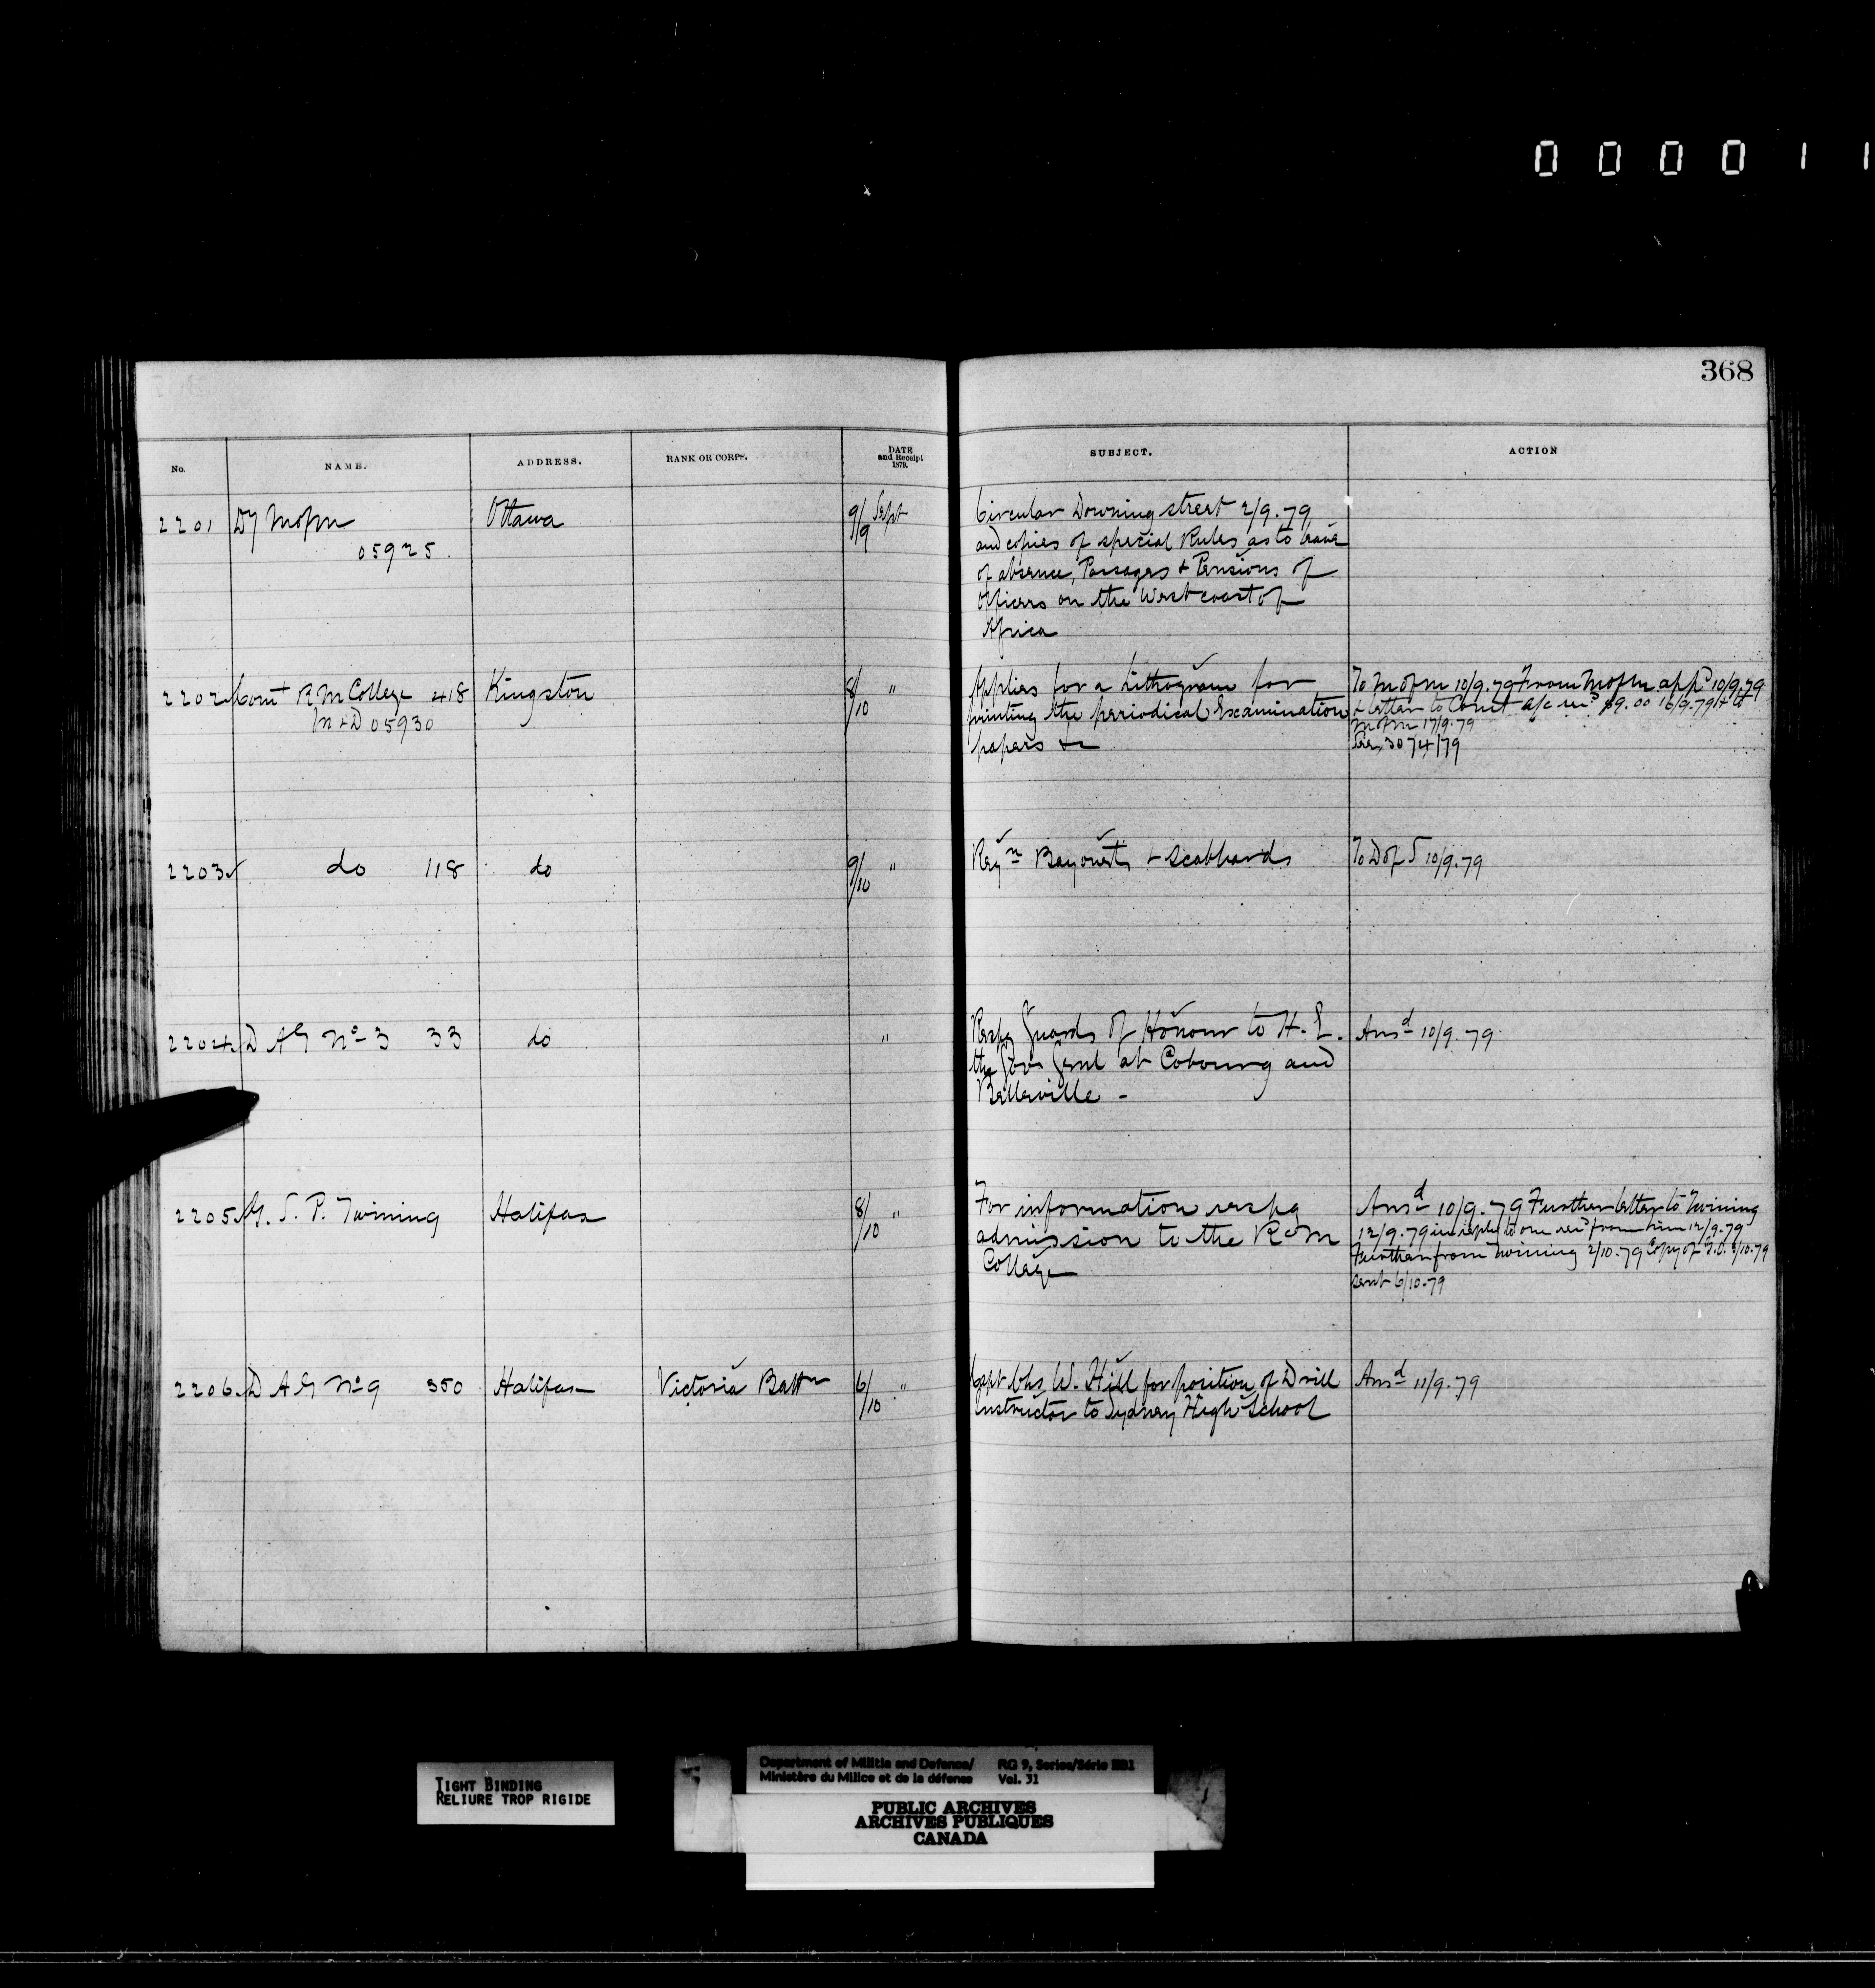 0 0 0 0 1 1
368
No. NAME. ADDRESS. RANK OR CORPS. DATE and Receipt 1879. SUBJECT. ACTION
2201 Dy M of M Ottawa 9/9 Sept Circular Downing street 2/9.79
05925. and copies of special Rules as to leave
of absence, Passages + Pensions of
Officers on the West coast of
Africa
2202 Comt R M College 418 Kingston 8/10 " Applies for a Lithogram for To M of M 10/9.79 From M of M appd 10/9.79
M + D 05930 printing the periodical Examination + letter to Comt a/c recd $9.00 16/9.79 + to
papers &c M of M 17/9.79
See 3074/79
2203 do 118 do 9/10 " Reqn Bayonets + Scabbards To D of S 10/9.79
2204 D A G No 3 33 do " Respg Guards of Honour to H. E. Ansd 10/9.79
the Gov Genl at Cobourg and
Belleville -
2205 G. S. P. Twining Halifax 8/10 " For information respg Ansd 10/9.79 Further letter to Twining
admission to the R M 12/9.79 in reply to one recd from him 12/9.79
College Further from Twining 2/10.79 Copy of G.O. /10.79
sent 6/10.79
2206 D A G No 9 350 Halifax Victoria Battn 6/10 " Capt Chs W. Hill for position of Drill Ansd 11/9.79
Instructor to Sydney High School
TIGHT BINDING
RELIURE TROP RIGIDE
Department of Militia and Defence/ RG 9, Series/Série IIB1
Ministère du Milice et de la défense Vol. 31
PUBLIC ARCHIVES
ARCHIVES PUBLIQUES
CANADA